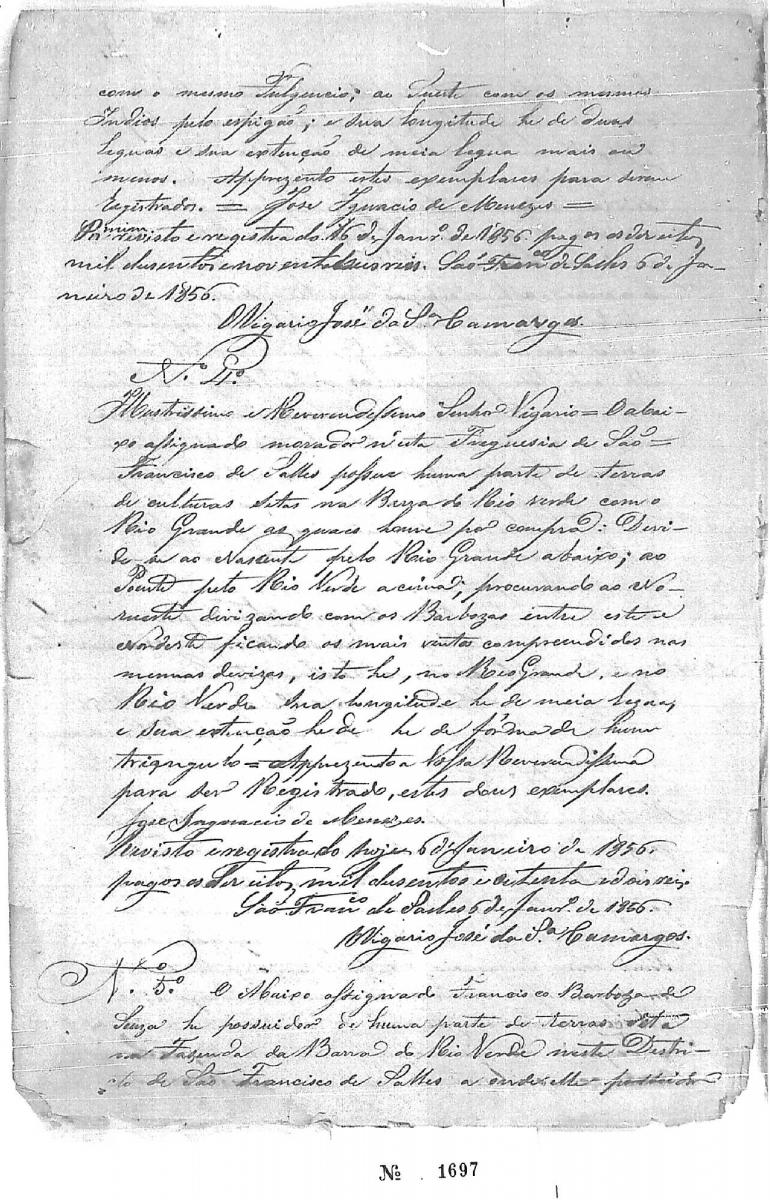 com o mesmo Fulgencio; ao Sueste com os mesmos
Indios pelo espigão; e sua longitude he de duas
leguas e sua extenção de meia legua mais ou
menos. Apprezento estes exemplares para serem
registrados. = Jose Ignacio de Menezes =
revisto e registrado 6 de Janrº. de 1856. pagos os direitos
mil desentos e noventa reis. São Franco de Salles 6 de Ja-
neiro de 1856.
O Vigario José da Sª Camargos.
N.º 4º
Illustrissimo e Reverendissimo Senhor Vigario = O abai-
xo assignado morador n'esta Freguesia de São =
Francisco de Salles possue huma parte de terras
de culturas sitas na Barra do Rio verde com o
Rio Grande as quais houve por compra: Devi-
de se ao Nascente pelo Rio Grande abaixo; ao
Poente pelo Rio Verde acima; procurando ao No-
rueste divizando com os Barbozas entre este e
Nordeste ficando os mais ventos comprendidos nas
mesmas devizas, isto he, no Rio Grande, e no
Rio Verde Sua longitude he de meia legua,
e sua extenção he de he de fórma de hum
triangulo = Apprezento a Vossa Reverendissima
para ser Registrado, estes dous exemplares.
Jose Ingnacio de Menezes.
Revisto e registrado hoje 6 de Janeiro de 1856.
pagos os direitos mil desentos e oitenta e dois reis.
São Franco de Salles 6 de Janrº. de 1856.
O Vigario José da Sª Camargos.
N.º 5º O Abaixo assignado Francisco Barboza de
Souza he possuidor de huma parte de terras sita
na Fazenda da Barra do Rio Verde neste Destri-
to de São Francisco de Salles a onde elle possuidor
Nº 1697